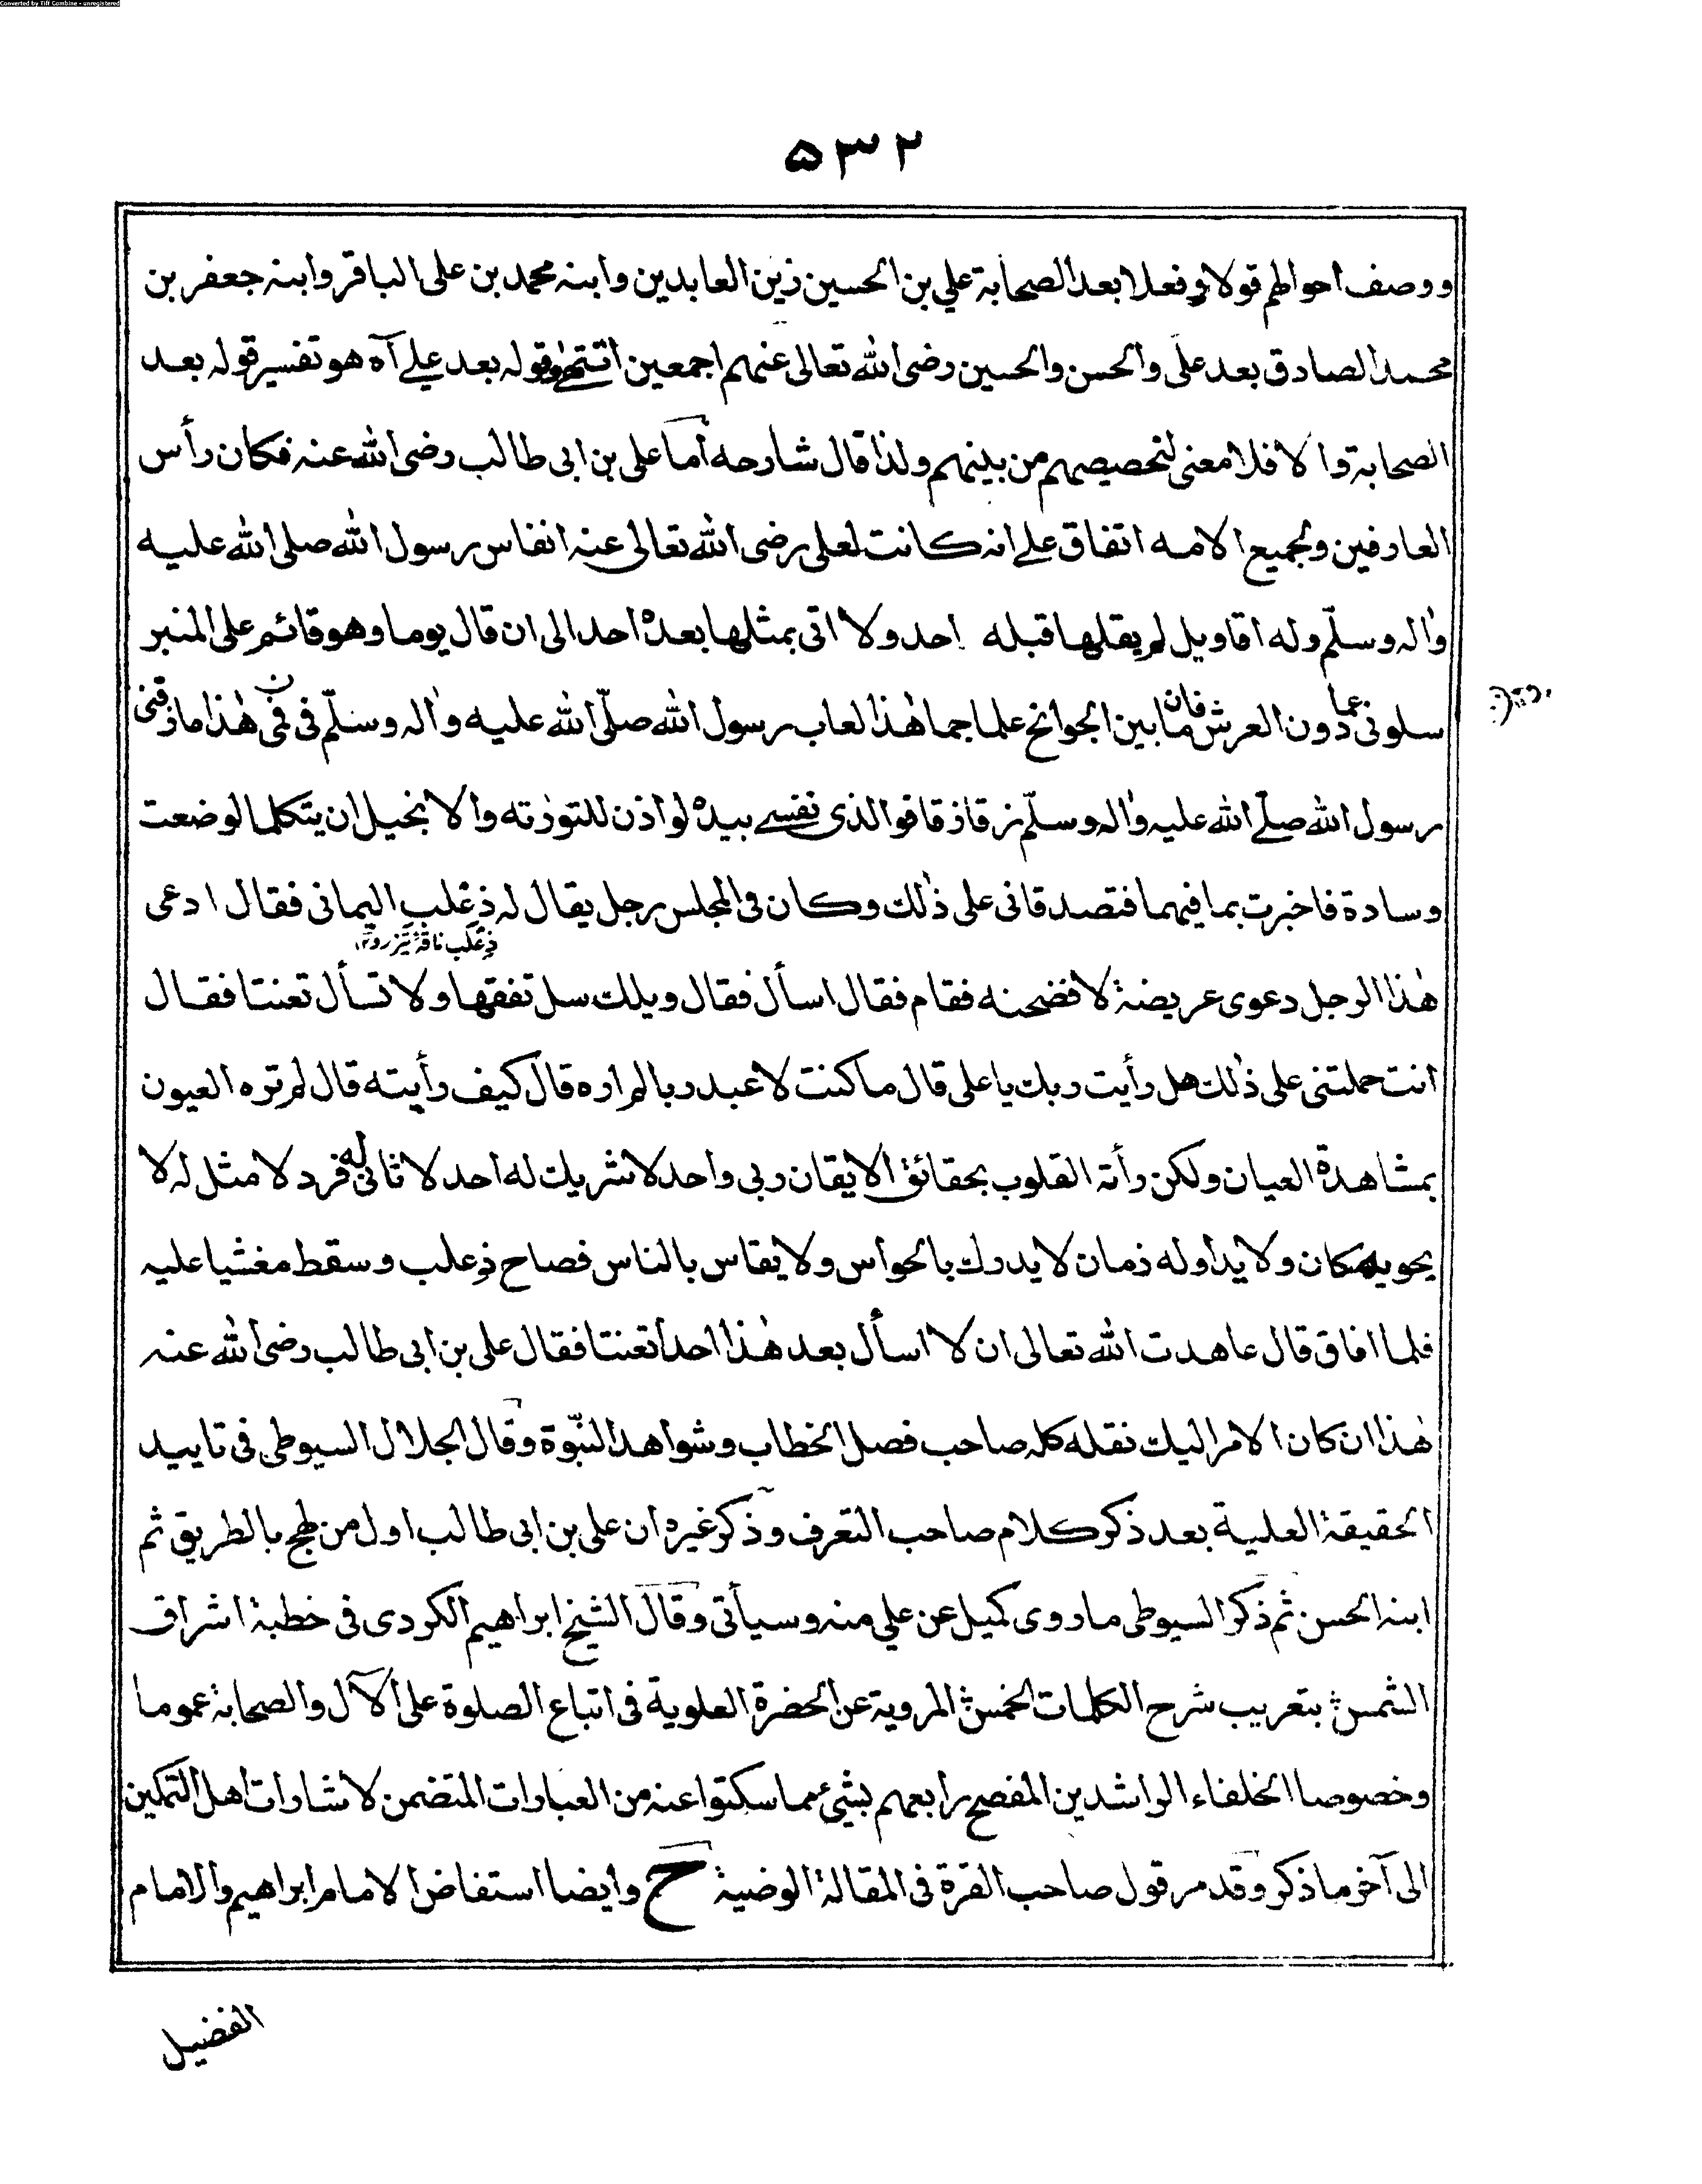 Converted by Tiff Combine - unregistered
۵۳۲
ووصف احوالهم قولا وفعلا بعد الصحابة علي بن الحسين زين العابدين وابنه محمد بن على الباقر وابنه جعفر بن
محمد الصادق بعد على والحسن والحسين رضى الله تعالى عنهم اجمعين انتهى وقوله بعد على آه هو تفسير قوله بعد
الصحابة والا فلا معنى لتخصيصهم من بينهم ولذا قال شارحه أما على بن ابى طالب رضى الله عنه فكان رأس
العارفين ولجميع الامه اتفاق على انه كانت لعلى رضى الله تعالى عنه انفاس رسول الله صلى الله عليه
واله وسلّم وله اقاويل لم يقلها قبله احد ولا اتى بمثلها بعده احد الى ان قال يوما وهو قائم على المنبر
سلونى عما دون العرش فان ما بين الجوانح علما جما هذا لعاب رسول الله صلّى الله عليه واله وسلّم فى فى هذا ما زقنى
رسول الله صلّى الله عليه واله وسلّم زقا زقا فوالذى نفسى بيده لو اذن للتورٰته والانجيل ان يتكلما لوضعت
وسادة فاخبرت بما فيهما فتصدقانى على ذلك وكان فى المجلس رجل يقال له ذعلب اليمانى فقال ادعى
ذِعْلَب ناقۀ تیزرو ۱۲
هذا الرجل دعوى عريضة لافضحنه فقام فقال اسأل فقال ويلك سل تفقها ولا تسأل تعنتا فقال
انت حملتنى على ذلك هل رأيت ربك يا على قال ما كنت لاعبد ربا لم اره قال كيف رأيته قال لم تره العيون
بمشاهدة العيان ولكن رأته القلوب بحقائق الايقان ربى واحد لا شريك له احد لا ثانى له فرد لا مثل له لا
يحويه مكان ولا يداوله زمان لا يدرك بالحواس ولا يقاس بالناس فصاح ذعلب وسقط مغشيا عليه
فلما افاق قال عاهدت الله تعالى ان لا اسأل بعد هذا احدا تعنتا فقال على بن ابى طالب رضى الله عنه
هذا ان كان الامر اليك نقله كله صاحب فصل الخطاب وشواهد النبّوة وقال الجلال السيوطى فى تاييد
الحقيقة العلية بعد ذكر كلام صاحب التعرف وذكر غيره ان على بن ابى طالب اول من لهج بالطريق ثم
ابنه الحسن ثم ذكر السيوطى ما روى كميل عن علي منه وسيأتى وقال الشيخ ابراهيم الكردى فى خطبة اشراق
الشمس بتعريب شرح الكلمات الخمس المروية عن الحضرة العلوية فى اتباع الصلوة على الآل والصحابة عموما
وخصوصا الخلفاء الراشدين المفصح رابعهم بشئ مما سكتوا عنه من العبارات المتضمن لاشارات اهل التمكين
الى آخر ما ذكر وقد مر قول صاحب القرة فى المقالة الوضية ح وأيضا استفاض الامام ابراهيم والامام
الفضيل